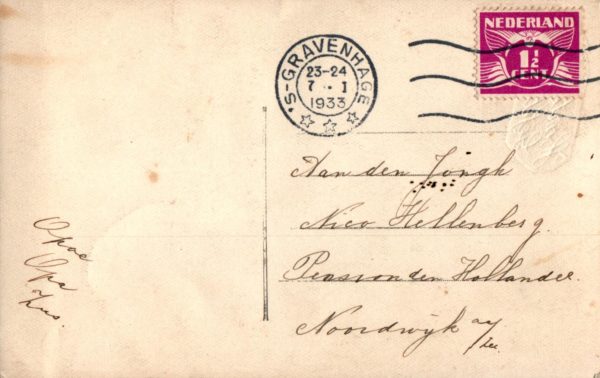 NEDERLAND
1½
CENT
'S-GRAVENHAGE
23-24
7 . I
1933
Aan den Jongh
Nico Hellenberg.
Pension den Hollander.
Noordwijk a/
zee.
Opoe
Opa
Zus.